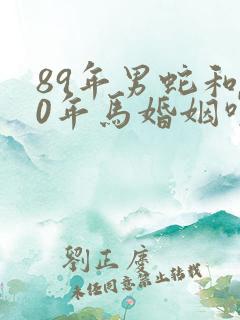 89年男蛇和
0年馬婚姻
劉正
未经同意禁止转载